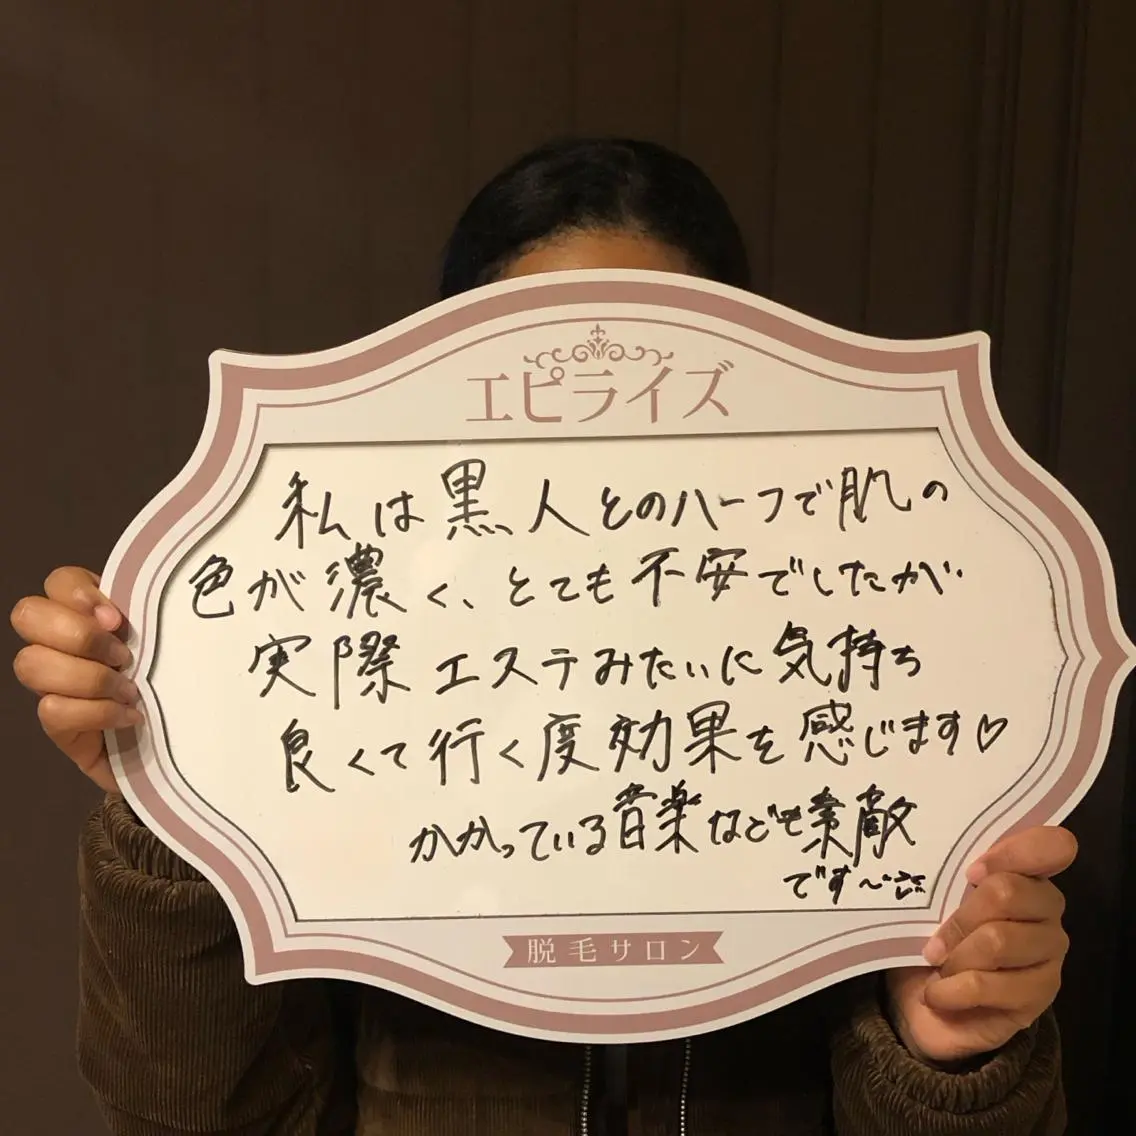 エピライズ
私は黒人とのハーフで肌の
色が濃く、とても不安でしたが、
実際エステみたいに気持ち
良くて行く度効果を感じます♡
かかっている音楽なども素敵
です〜
脱毛サロン